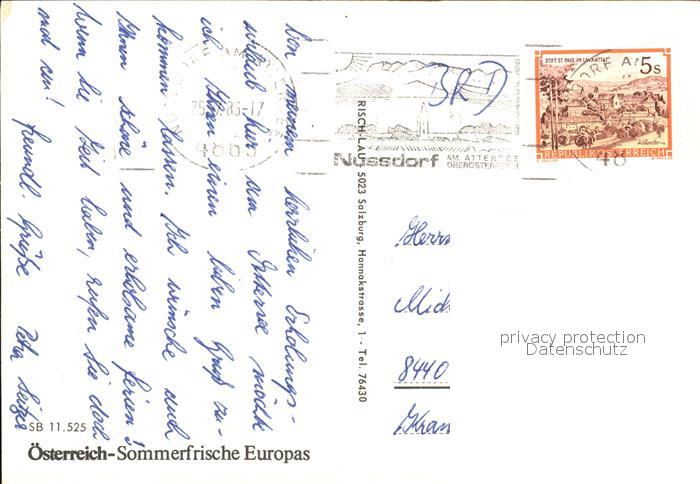 Von meinem herrlichen Erholungs-
urlaub hier am Attersee möchte
ich Ihnen einen lieben Gruß zu-
kommen lassen. Ich wünsche auch
Ihnen schöne und erholsame Ferien!
Wenn Sie Zeit haben, rufen Sie doch
mal an!
freundl. Grüße
SB 11.525
Österreich-Sommerfrische Europas
RISCH-LAU, 5023 Salzburg, Hannakstrasse, 1 - Tel. 76430
-17
4865
Nussdorf
AM ATTERSEE
OBERÖSTERREICH
BRD
STIFT ST. PAUL IM LAVANTTAL
5s
REPUBLIK ÖSTERREICH
Herrn
Mich
8440
privacy protection
Datenschutz